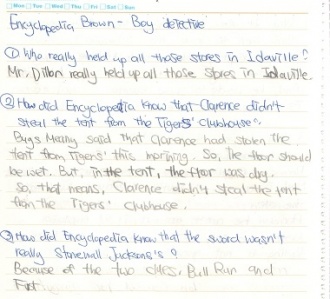 Mon Tue Wed Thu Fri Sat Sun
Encyclopedia Brown - Boy detective
① Who really held up all those stores in Idaville?
Mr. Dillon really held up all those stores in Idaville.
② How did Encyclopedia know that Clarence didn't
steal the tent from the Tigers' clubhouse?
Bugs Meany said that Clarence had stolen the
tent from Tigers' this morning. So, the floor should
be wet. But, in the tent, the floor was dry.
So, that means, Clarence didn't steal the tent
from the Tigers' clubhouse.
③ How did Encyclopedia know that the sword wasn't
really Stonewall Jackson's?
Because of the two clues, Bull Run and
First